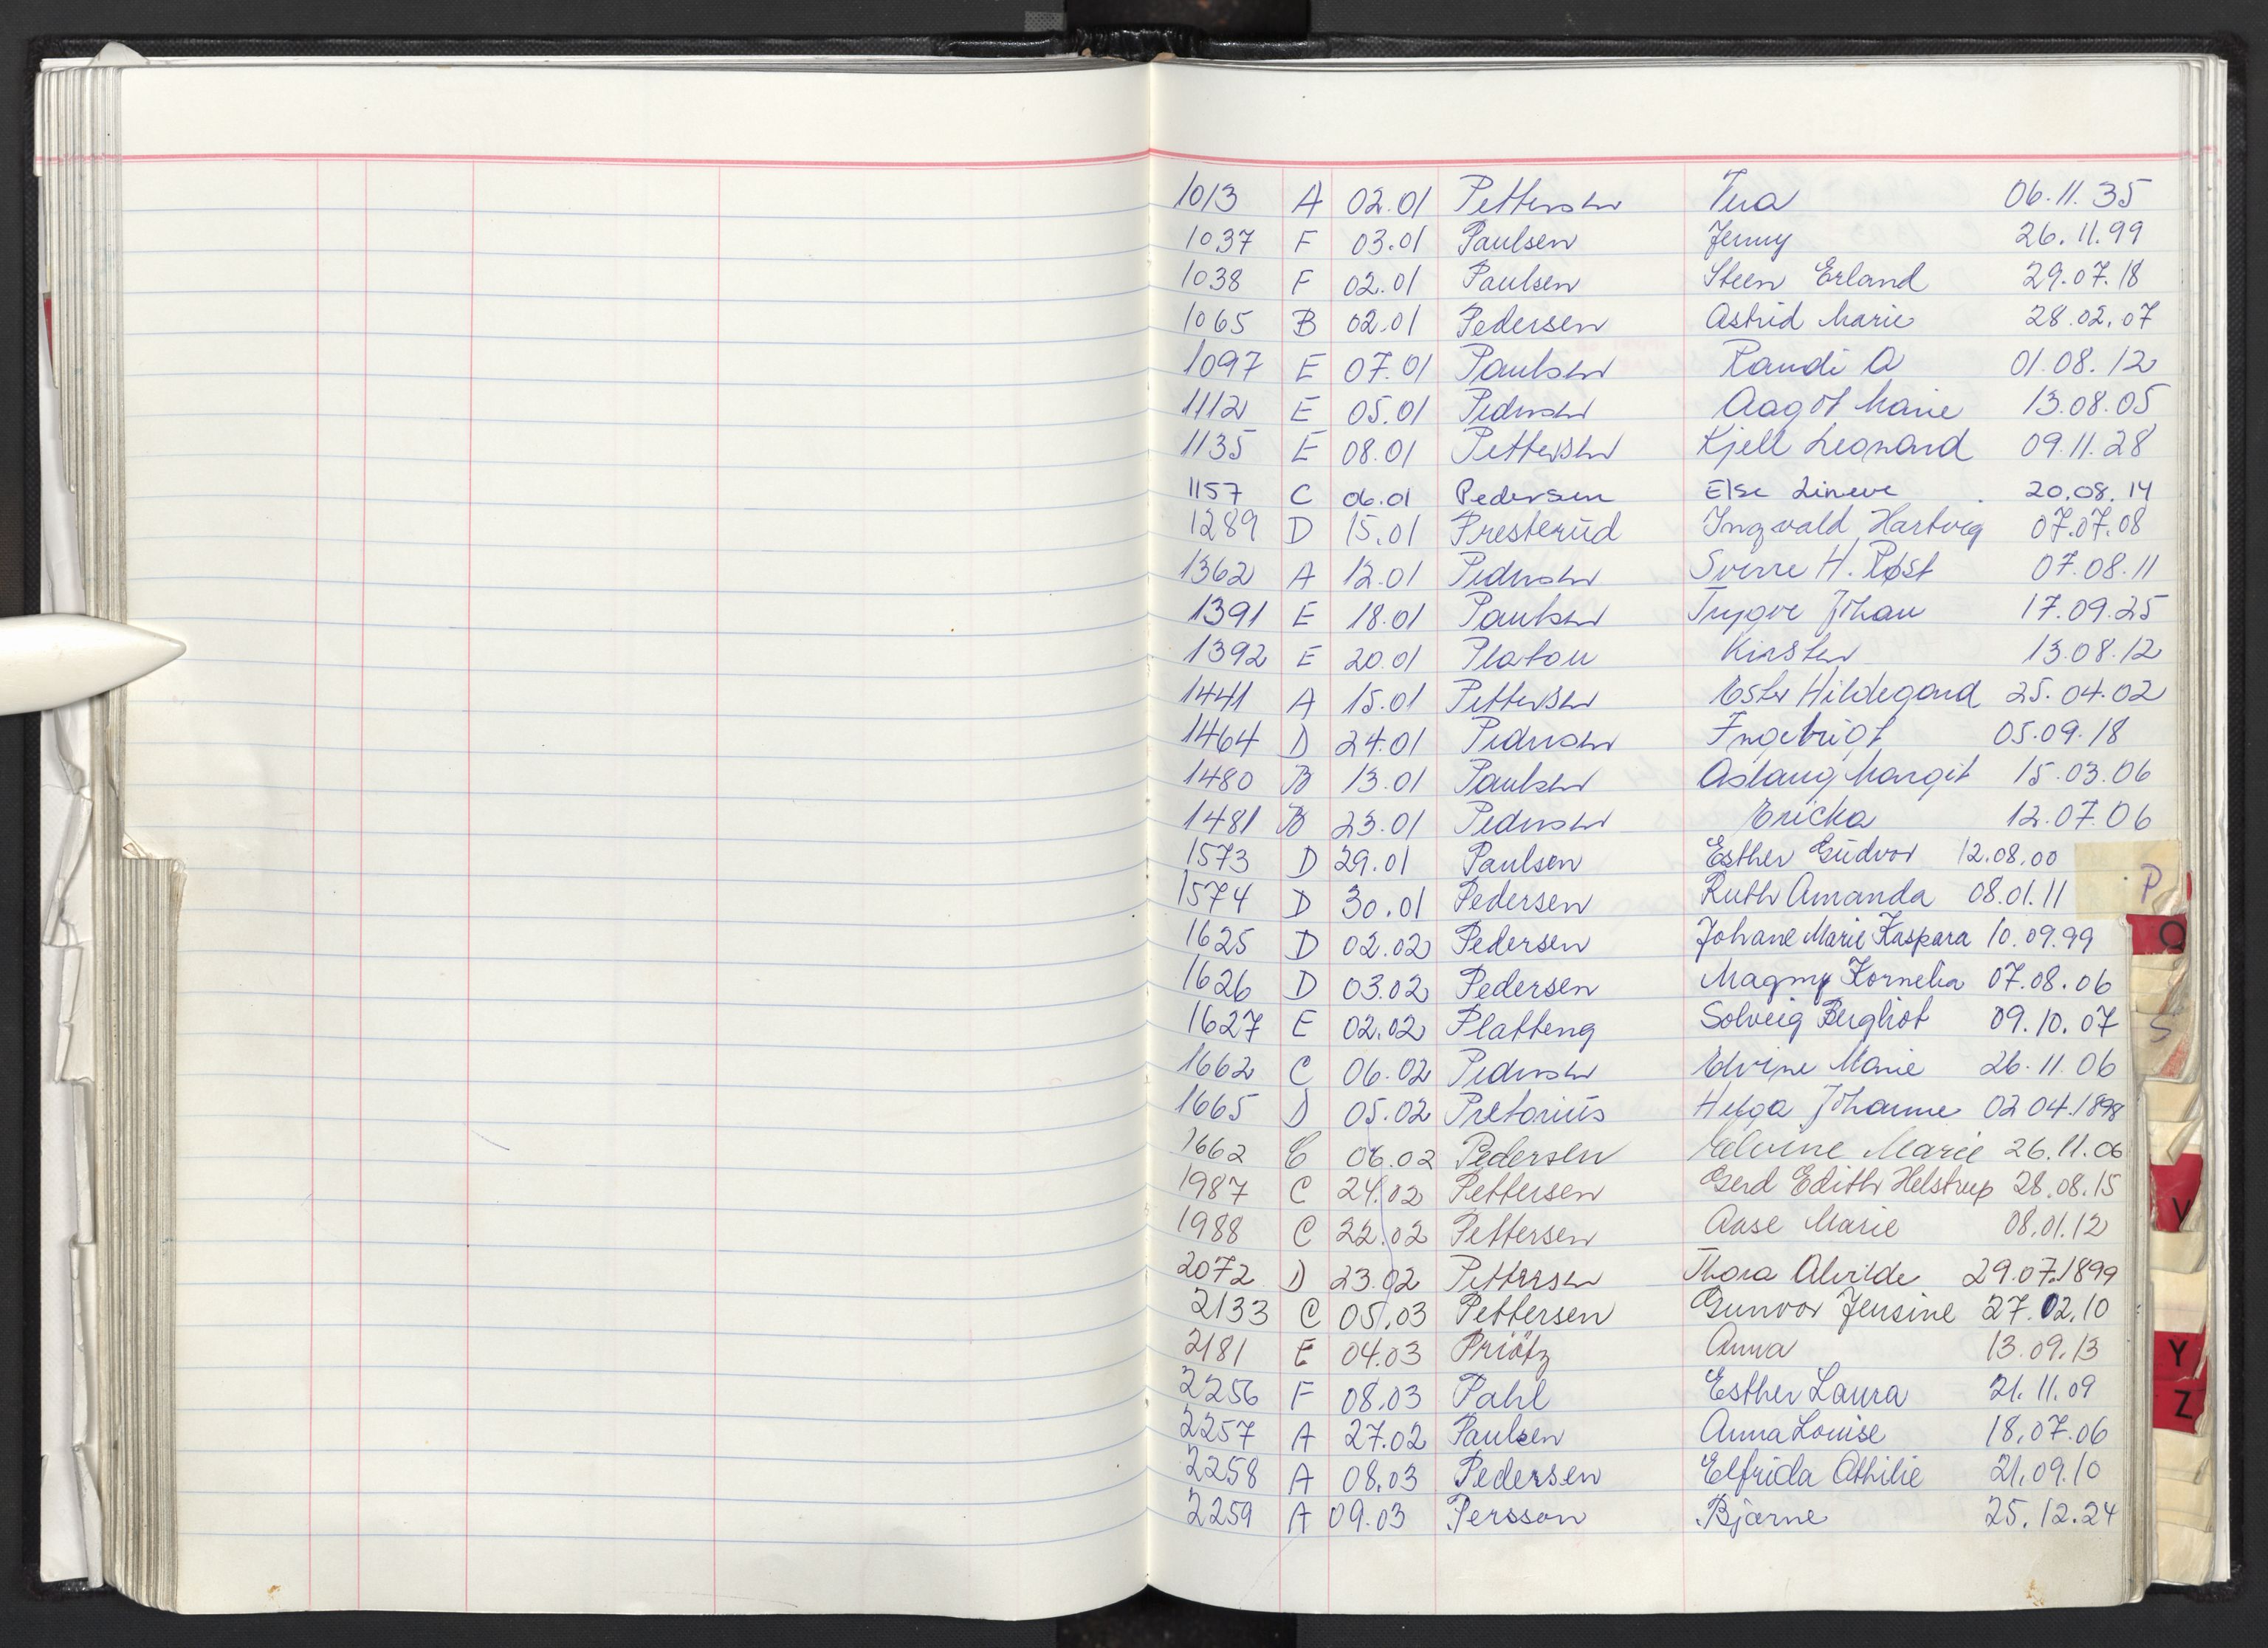 1013 A 02.01 Pettersen Vera 06.11.35
1037 F 03.01 Paulsen Jenny 26.11.99
1038 F 02.01 Paulsen Steen Erland 29.07.18
1065 B 02.01 Pedersen Astrid Marie 28.02.07
1097 E 07.01 Paulsen Randi A 01.08.12
1112 E 05.01 Pedersen Aagot Marie 13.08.05
1135 E 08.01 Pettersen Kjell Leonard 09.11.28
1157 C 06.01 Pedersen Else 20.08.14
1289 D 15.01 Presterud Ingvald Hartvig 07.07.08
1362 A 12.01 Pedersen Sverre H. Røst 07.08.11
1391 E 18.01 Paulsen Trygve Johan 17.09.25
1392 E 20.01 Platou Kirsten 13.08.12
1441 A 15.01 Pettersen Ester Hildegard 25.04.02
1464 D 24.01 Pedersen Ingebrigt 05.09.18
1480 B 13.01 Paulsen Aslaug Margit 15.03.06
1481 B 23.01 Pedersen Ericka 12.07.06
1573 D 29.01 Paulsen Esther Gudvor 12.08.00
P
1574 D 30.01 Pedersen Ruth Amanda 08.01.11
1625 D 02.02 Pedersen Johane Marie Kaspara 10.09.99
Q
1626 D 03.02 Pedersen Magny Kornelia 07.08.06
1627 E 02.02 Platteng Solveig Bergliot 09.10.07
S
1662 C 06.02 Pedersen Edvine Marie 26.11.06
1665 D 05.02 Pretorius Helga Johanne 02 04.1898
1662 C 06.02 Pedersen Edvine Marie 26.11.06
1987 C 24.02 Pettersen Gerd Edith Helstrup 28.08.15
1988 C 22.02 Pettersen Aase Marie 08.01.12
V
2072 D 23.02 Pettersen Thora Alvilde 29.07.1899
2133 C 05.03 Pettersen Gunvor Jensine 27.02.10
2181 E 04.03 Priötz Anna 13.09.13
Y
2256 F 08.03 Pahl Esther Laura 21.11.09
Z
2257 A 27.02 Paulsen Anna Louise 18.07.06
2258 A 08.03 Pedersen Elfrida Othilie 21.09.10
2259 A 09.03 Persson Bjarne 25.12.24